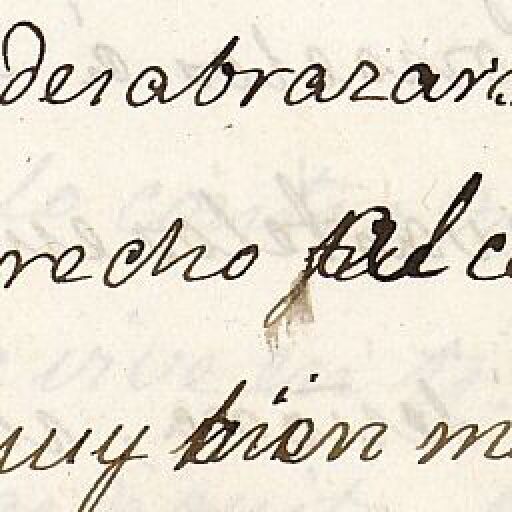 desabrazar
recho al c
muy bien m